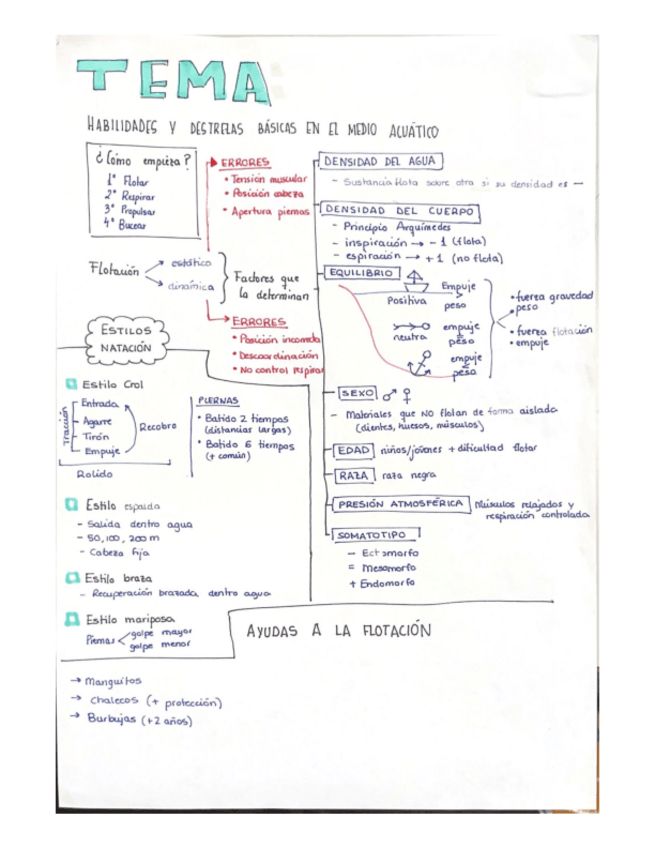 TEMA
HABILIDADES Y DESTREZAS BÁSICAS EN EL MEDIO ACUÁTICO
¿Cómo empieza?
1º Flotar
2º Respirar
3º Propulsar
4º Bucear
ERRORES
• Tensión muscular
• Posición cabeza
• Apertura piernas
Flotación
estático
dinámica
Factores que
la determinan
ERRORES
• Posición incorrecta
• Descoordinación
• No control respirar
DENSIDAD DEL AGUA
- Sustancia flota sobre otra si su densidad es -
DENSIDAD DEL CUERPO
- Principio Arquímedes
- inspiración → - 1 (flota)
- espiración → + 1 (no flota)
EQUILIBRIO
Positiva
Empuje
>
peso
neutra
empuje
=
peso
empuje
<
peso
• fuerza gravedad
• peso
• fuerza flotación
• empuje
SEXO ♂ ♀
- Materiales que NO flotan de forma aislada
(dientes, huesos, músculos)
EDAD niños/jóvenes + dificultad flotar
RAZA raza negra
PRESIÓN ATMOSFÉRICA Músculos relajados y
respiración controlada
SOMATOTIPO
- Ectomorfo
= Mesomorfo
+ Endomorfo
ESTILOS
NATACIÓN
Estilo Crol
Tracción
Entrada
- Agarre
- Tirón
Empuje
Recobro
Rolido
PIERNAS
• Batido 2 tiempos
(distancias largas)
• Batido 6 tiempos
(+ común)
Estilo espalda
- Salida dentro agua
- 50, 100, 200 m
- Cabeza fija
Estilo braza
- Recuperación brazada dentro agua
Estilo mariposa
Piernas
golpe mayor
golpe menor
AYUDAS A LA FLOTACIÓN
→ Manguitos
→ Chalecos (+ protección)
→ Burbujas (+2 años)